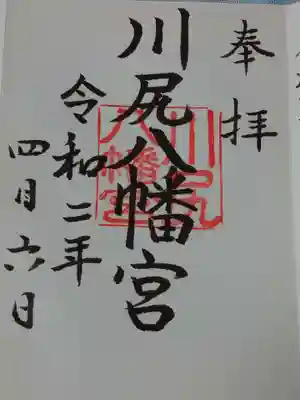 奉拝
川尻八幡宮
川尻八幡宮
令和二年
四月六日